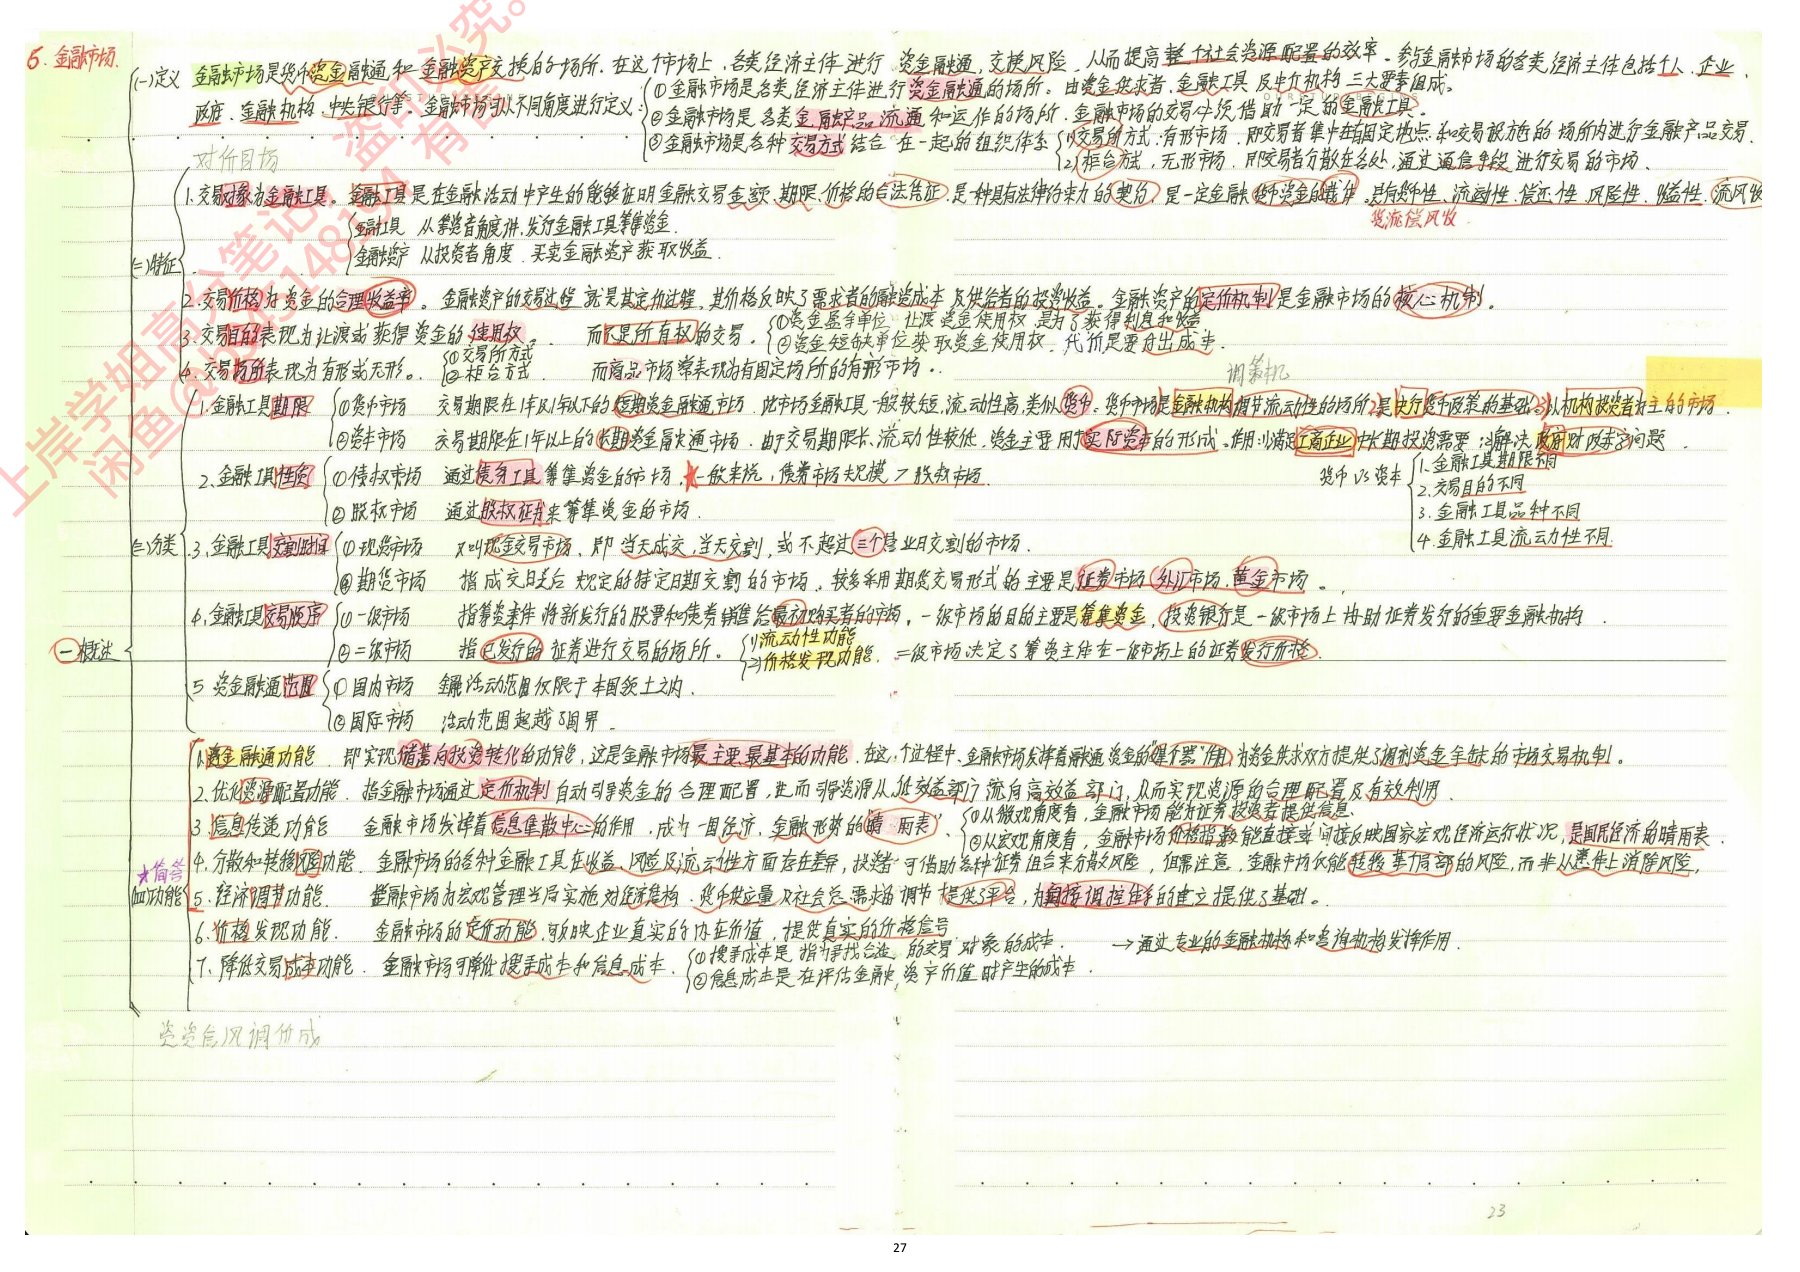 6. 金融市场.
(一)定义 金融市场是货币资金融通和金融资产交换的场所. 在这个市场上, 各类经济主体进行 资金融通, 交换风险, 从而提高整个社会资源配置的效率. 参与金融市场的各类经济主体包括个人、企业、
政府、金融机构、中央银行等. 金融市场可从不同角度进行定义:
①金融市场是各类经济主体进行资金融通的场所. 由资金供求者, 金融工具 及中介机构 三大要素组成.
②金融市场是各类金融产品流通和运作的场所. 金融市场的交易必须借助一定的金融工具.
③金融市场是各种交易方式结合在一起的组织体系
1)交易所方式: 有形市场, 即交易者集中在有固定地点和交易设施的场所内进行金融产品交易.
2)柜台方式, 无形市场, 即交易者分散在各处, 通过通信手段进行交易的市场.
对价目场
(二)特征
1.交易对象为金融工具. 金融工具是在金融活动中产生的能够证明金融交易金额、期限、价格的合法凭证, 是一种具有法律约束力的契约, 是一定金融货币资金的载体. 具有货币性、流动性、偿还性、风险性、收益性.
货流偿风收
金融工具 从筹资者角度讲,发行金融工具筹集资金.
金融资产 从投资者角度. 买卖金融资产获取收益.
2.交易价格为资金的合理收益率. 金融资产的交易过程就是其定价过程, 其价格反映了需求者的融资成本及供给者的投资收益. 金融资产的定价机制是金融市场的核心机制.
3.交易目的表现为让渡或获得资金的使用权. 而不是所有权的交易.
①资金盈余单位 让渡资金使用权, 是为了获得利息和收益
②资金短缺单位获取资金使用权, 代价是要付出成本.
4.交易场所表现为有形或无形.
①交易所方式
②柜台方式.
而商品市场常表现为有固定场所的有形市场.
调策机
(三)分类
1.金融工具期限
①货币市场 交易期限在1年及1年以下的短期资金融通市场. 此市场金融工具一般较短,流动性高,类似货币. 货币市场是金融机构调节流动性的场所 2)是央行货币政策的基础 3)以机构投资者为主的市场.
②资本市场 交易期限在1年以上的长期资金融通市场. 由于交易期限长,流动性较低, 资金主要用于实际资本的形成. 作用:1)满足工商企业中长期投资需要;2)解决政府财政赤字问题.
2.金融工具性质
①债权市场 通过债务工具筹集资金的市场. ★一般来说, 债券市场规模>股权市场.
②股权市场 通过股权证券来筹集资金的市场.
货币 VS 资本
1.金融工具期限不同
2.交易目的不同
3.金融工具品种不同
4.金融工具流动力性不同.
3.金融工具交割时间
①现货市场 又叫现金交易市场, 即当天成交,当天交割, 或不超过三个营业日交割的市场.
②期货市场 指成交日之后规定的特定日期交割的市场, 较多采用期货交易形式的主要是证券市场、外汇市场、黄金市场.
4.金融工具交易顺序
①一级市场 指筹资主体将新发行的股票和债券销售给最初购买者的市场, 一级市场的目的主要是筹集资金, 投资银行是一级市场上协助证券发行的重要金融机构.
②二级市场 指已发行的证券进行交易的场所.
1)流动性功能
2)价格发现功能.
二级市场决定了筹资主体在一级市场上的证券发行价格.
(一)概述
5 资金融通范围
①国内市场 金融活动范围仅限于本国领土之内.
②国际市场 活动范围超越了国界.
★简答
(四)功能
1.资金融通功能. 即实现储蓄向投资转化的功能, 这是金融市场最主要、最基本的功能. 在这个过程中, 金融市场发挥着融通资金的"媒介器"作用, 为资金供求双方提供了调剂资金余缺的市场交易机制.
2.优化资源配置功能. 指金融市场通过定价机制自动引导资金的合理配置, 进而引导资源从低效益部门流向高效益部门, 从而实现资源的合理配置及有效利用.
3.信息传递功能 金融市场发挥着信息集散中心的作用, 成为一国经济、金融形势的"晴雨表".
①从微观角度看, 金融市场能为证券投资者提供信息.
②从宏观角度看, 金融市场价格指数能直接或间接反映国家宏观经济运行状况, 是国民经济的晴雨表.
4.分散和转移风险功能. 金融市场的各种金融工具在收益、风险及流动性方面存在差异, 投资者可借助各种证券组合来分散风险, 但需注意, 金融市场仅能转移某个局部的风险, 而非从总体上消除风险.
5.经济调节功能. 金融市场为宏观管理当局实施对经济结构、货币供应量及社会总需求的调节提供了平台, 为间接调控体系的建立提供了基础.
6.价格发现功能. 金融市场的定价功能, 可反映企业真实的内在价值, 提供真实的价格信号.
7.降低交易成本功能. 金融市场可降低搜寻成本和信息成本.
①搜寻成本是指为寻找合适的交易对象的成本.
②信息成本是在评估金融资产价值时产生的成本.
→通过专业的金融机构和咨询机构发挥作用.
资资信风调价成
23
27
上岸学姐高分笔记,盗印必究。